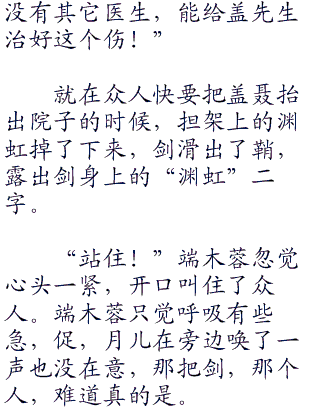 没有其它医生，能给盖先生
治好这个伤！”
就在众人快要把盖聂抬
出院子的时候，担架上的渊
虹掉了下来，剑滑出了鞘，
露出剑身上的“渊虹”二
字。
“站住！”端木蓉忽觉
心头一紧，开口叫住了众
人。端木蓉只觉呼吸有些
急，促，月儿在旁边唤了一
声也没在意，那把剑，那个
人，难道真的是。